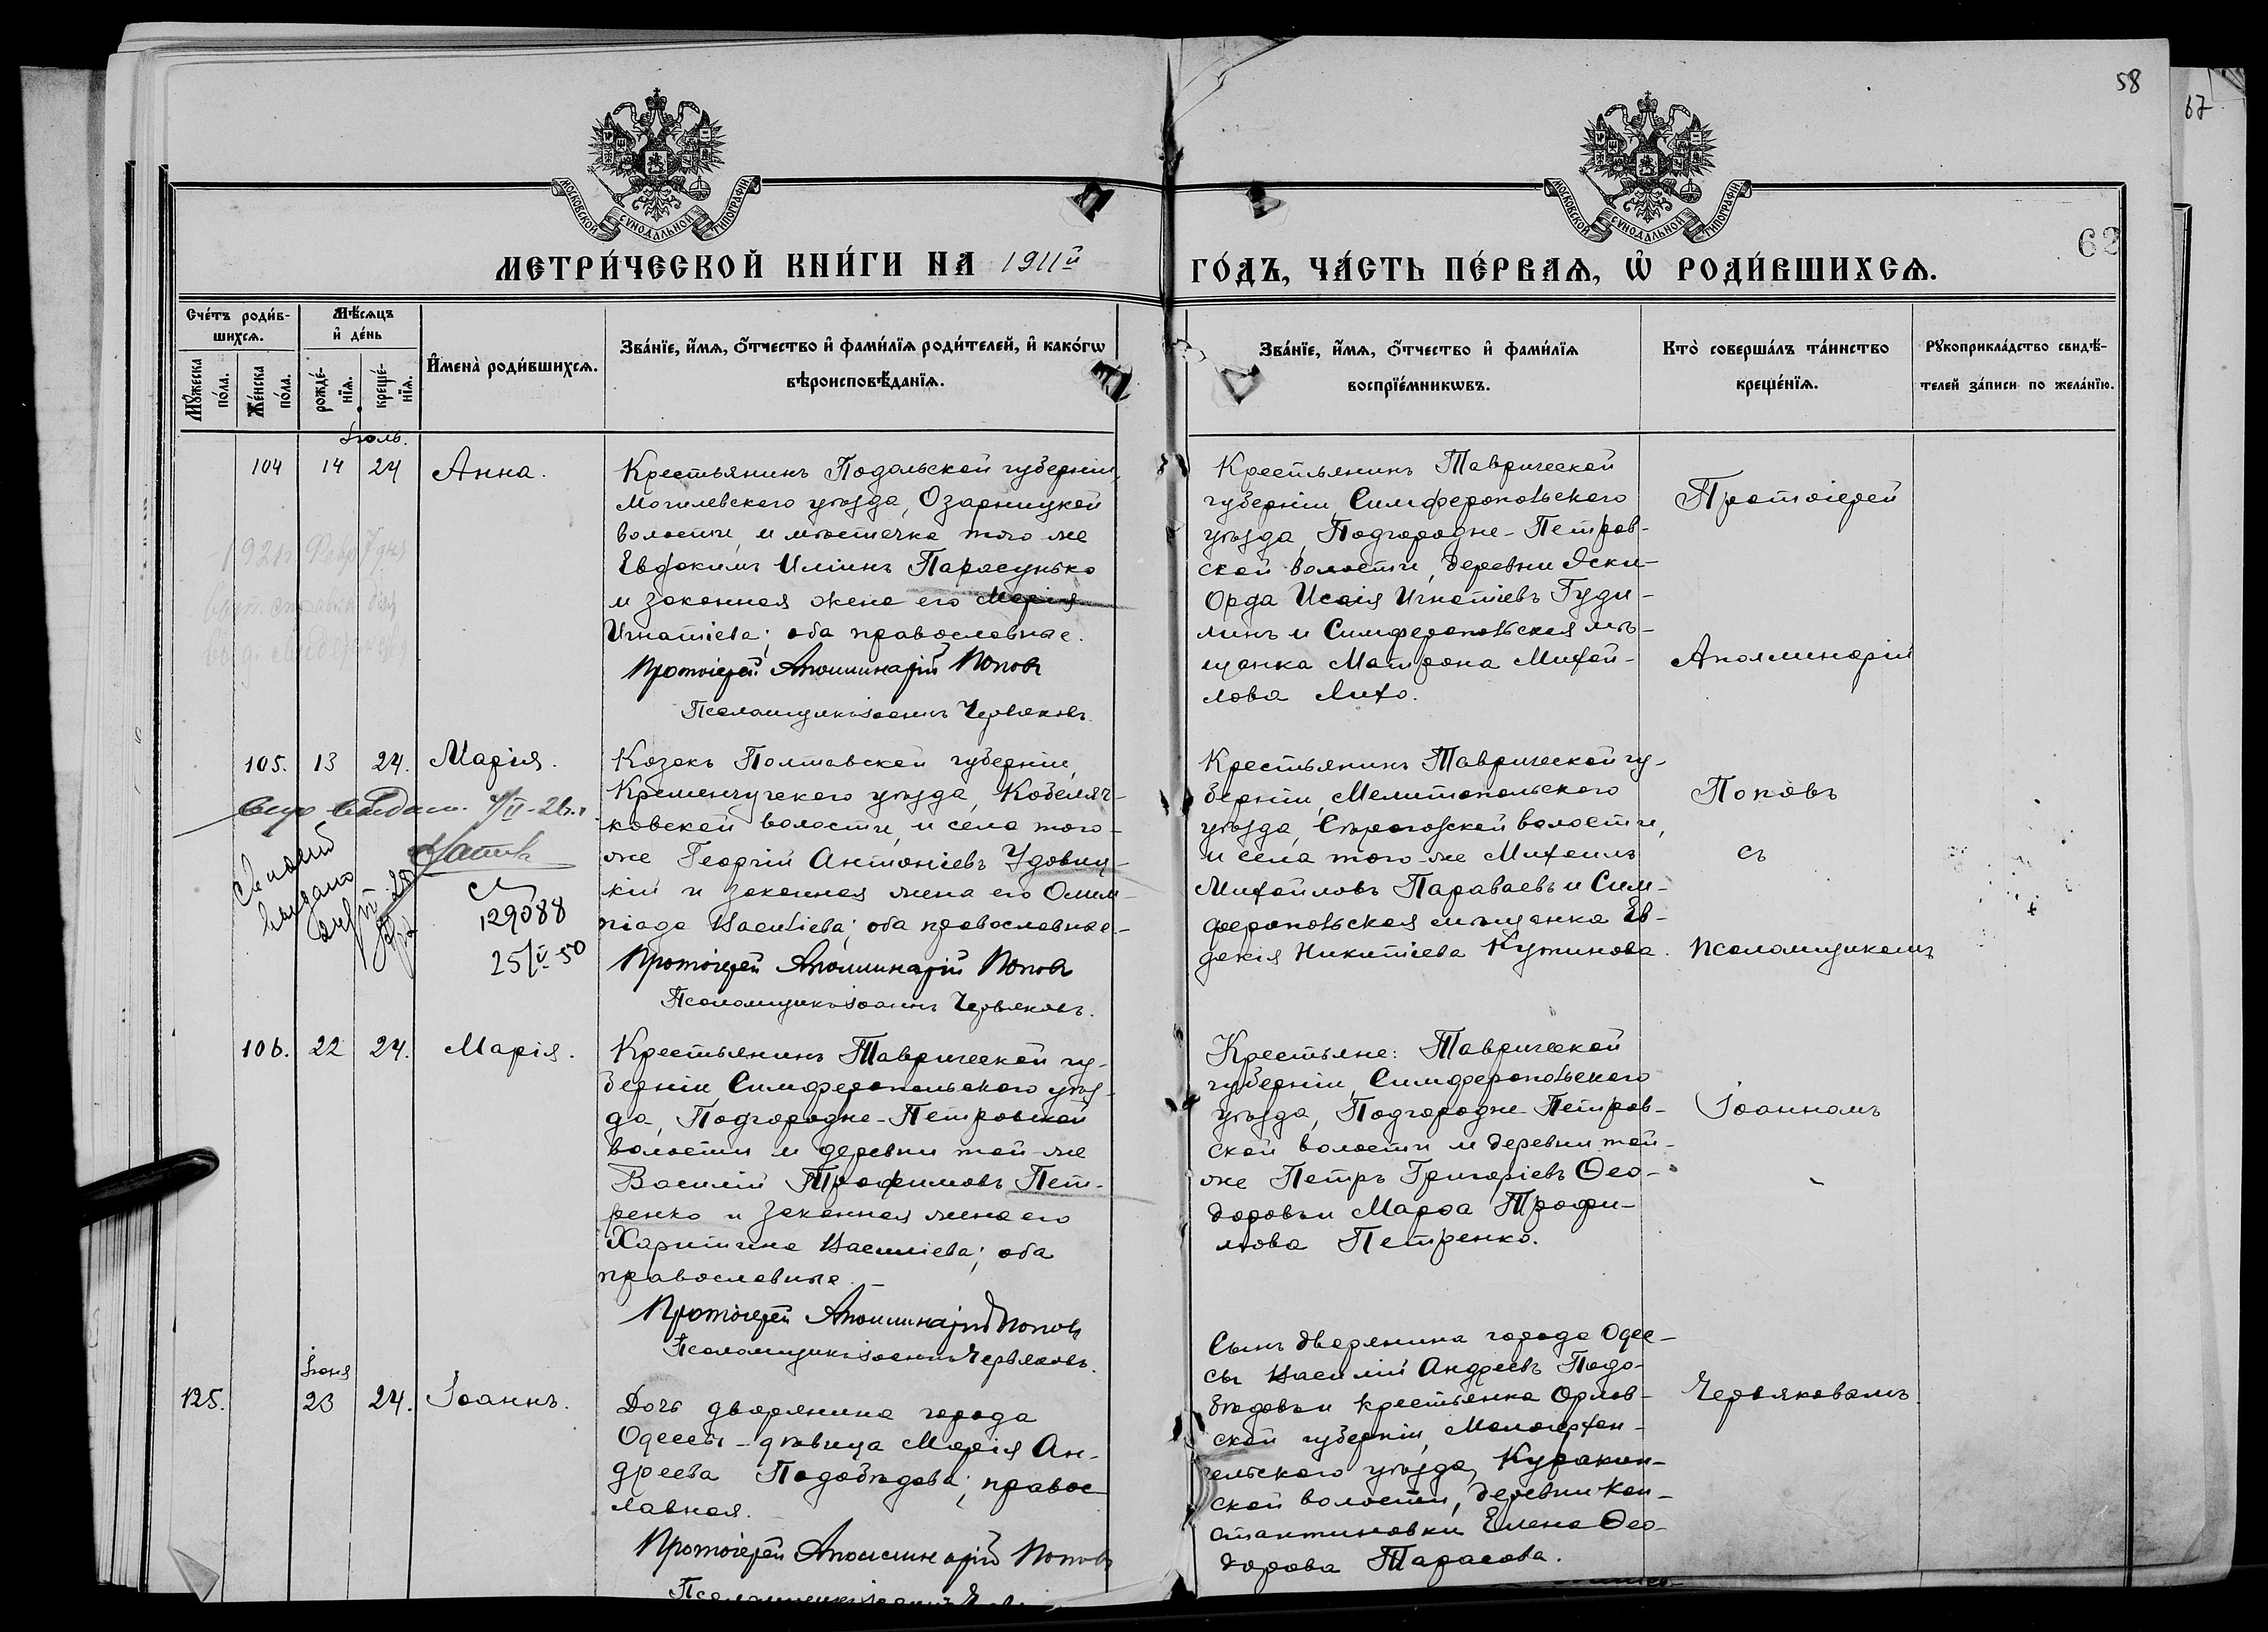 58
67
МОСКОВСКОЙ СУНОДАЛЬНОЙ ТИПОГРАФІИ
МОСКОВСКОЙ СУНОДАЛЬНОЙ ТИПОГРАФІИ
62
МЕТРИ́ЧЕСКОЙ КНИ́ГИ НА 1911й
ГО́ДЪ, ЧА́СТЬ ПЕ́РВАѦ, Ѡ҆ РОДИ́ВШИХСѦ.
Сче́тъ роди́в-
шихсѧ.
Мꙋ́жеска по́ла.
Же́нска по́ла.
Мѣ́сѧцъ
и҆ де́нь
рожде́-нїѧ.
креще́-нїѧ.
И҆мена̀ роди́вшихсѧ.
Зва́нїе, и҆́мѧ, о҆́тчество и҆ фами́лїѧ роди́телей, и҆ како́гѡ
вѣроисповѣ́данїѧ.
Зва́нїе, и҆́мѧ, о҆́тчество и҆ фами́лїѧ
воспрїе́мникѡвъ.
Кто̀ соверша́лъ та́инство
креще́нїѧ.
Рꙋкоприкла́дство свидѣ́-
телей за́писи по жела́нїю.
Іюль.
104 14 24 Анна.
Крестьянинъ Подольской губерніи,
Могилевского уѣзда, Озариицкой
волости, и мѣстечка того-же
Евфокимъ Иліинъ Парасунько
и законная жена его Марія
Игнатіева; оба православные.
Протоіерей Аполлинарій Поповъ
Псаломщикъ Іоаннъ Червяковъ.
Крестьянинъ Таврической
губерніи, Симферопольского
уѣзда, Подгородне-Петров-
ской волости, деревни Эски-
Орда Исаія Игнатіевъ Гуди-
линъ и Симферопольская мѣ-
щанка Матрона Михай-
лова Лихо.
Протоіерей
Аполлинарій
1921г Февр 7 дня
справка
105. 13 24. Марія.
Козакъ Полтавской губерніи,
Кременчугского уѣзда, Кобеляч-
ковской волости, и села того-
же Георгій Антоніевъ Удовиц-
кій и законная жена его Олим-
піада Васильева; оба православные.-
Протоіерей Аполлинарій Поповъ
Псаломщикъ Іоаннъ Червяковъ.
Крестьянинъ Таврической гу-
берніи, Мелитопольского
уѣзда, Строгозской волости,
и села того-же Михаилъ
Михайловъ Параваевъ и Сим-
феропольская мѣщанка Ев-
докія Никитіева Кутинова.
Поповъ
съ
псаломщикомъ
выдано
129088
25/V 50
106. 22 24. Марія.
Крестьянинъ Таврической гу-
берніи, Симферопольского уѣз-
да, Подгородне-Петровской
волости и деревни той-же
Василій Трофимовъ Пет-
ренко и законная жена его
Харитина Василіева; оба
православные.-
Протоіерей Аполлинарій Поповъ
Псаломщикъ Іоаннъ Червяковъ.
Крестьяне: Таврической
губерніи, Симферопольского
уѣзда, Подгородне-Петров-
ской волости и деревни той-
же Петръ Григоріевъ Ѳео-
доровъ и Марѳа Трофи-
мова Петренко.
Іоанномъ
Іюня
125. 23 24. Іоаннъ.
Дочь дворянина города
Одессы-дѣвица Марія Ан-
дреева Подобѣдова; правос-
лавная.
Протоіерей Аполлинарій Поповъ
Псаломщикъ Іоаннъ
Сынъ дворянина города Одес-
сы Василій Андреевъ Подо-
бѣдовъ и крестьянка Орлов-
ской губерніи, Малоархан-
гельского уѣзда, Куракин-
ской волости, деревни Кон-
стантиновки Елена Ѳео-
дорова Тарасова.
Червяковымъ.